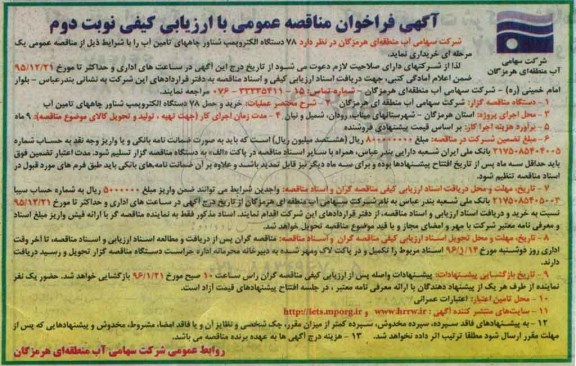 آگهی فراخوان مناقصه عمومی با ارزیابی کیفی نوبت دوم
شرکت سهامی آب منطقه‌ای هرمزگان در نظر دارد ۷۸ دستگاه الکتروپمپ شناور چاههای تامین آب را با شرایط ذیل از مناقصه عمومی یک
مرحله ای خریداری نماید.
لذا از شرکتهای دارای صلاحیت لازم دعوت می شود از تاریخ درج این آگهی در ساعت های اداری و حداکثر تا مورخ ۹۵/۱۲/۲۱
ضمن اعلام آمادگی کتبی، جهت دریافت اسناد ارزیابی کیفی و اسناد مناقصه به دفتر قراردادهای این شرکت به نشانی بندرعباس - بلوار
امام خمینی (ره) - شرکت سهامی آب منطقه‌ای هرمزگان - شماره تماس: ۱۵ - ۳۳۳۵۴۱۱ - ۰۷۶ مراجعه نمایند.
شرکت سهامی
آب منطقه‌ای هرمزگان
۱ - دستگاه مناقصه گزار: شرکت سهامی آب منطقه ای هرمزگان ۲ - شرح مختصر عملیات: خرید و حمل ۷۸ دستگاه الکتروپمپ شناور چاههای تامین آب
۳ - محل اجرای پروژه: استان هرمزگان - شهرستانهای میناب، رودان، شمیل و نیان ۴ - مدت زمان اجرای کار (جهت تهیه، تولید و تحویل کالای موضوع مناقصه): ۹ ماه
۵ - برآورد هزینه اجرا کار: بر اساس قیمت پیشنهادی فروشنده
۶ - مبلغ تضمین شرکت در مناقصه: مبلغ ۸۰۰۰۰۰۰۰۰ ریال (هشتصد میلیون ریال) است که باید به صورت ضمانت نامه بانکی و یا واریز وجه نقد به حساب شماره
۲۱۷۵۰۸۵۴۰۴۰۰۵ بانک ملی ایران شعبه دارایی بندر عباس، همراه با سایر اسناد مناقصه در پاکت «الف» به دستگاه مناقصه گزار تسلیم شود. مدت اعتبار تضمین فوق
باید حداقل سه ماه پس از تاریخ افتتاح پیشنهادها بوده و برای سه ماه دیگر نیز قابل تمدید باشد و علاوه بر آن ضمانت نامه های بانکی باید طبق فرم های مورد قبول در
اسناد مناقصه تنظیم شود.
۷ - تاریخ، مهلت و محل دریافت اسناد ارزیابی کیفی مناقصه گران و اسناد مناقصه: واجدین شرایط می توانند ضمن واریز مبلغ ۵۰۰۰۰۰۰ ریال به شماره حساب سیبا
۲۱۷۵۰۸۵۴۰۵۰۰۳ بانک ملی شعبه بندر عباس به نام شرکت سهامی آب منطقه ای هرمزگان از تاریخ درج آگهی در ساعت های اداری و حداکثر تا مورخ ۹۵/۱۲/۲۱
نسبت به خرید و دریافت اسناد ارزیابی و اسناد مناقصه، از دفتر قراردادهای این شرکت اقدام نمایند. اسناد مذکور فقط به نماینده مناقصه گر با ارائه فیش واریز مبلغ اسناد
و معرفی نامه معتبر شرکت با مهر و امضای مجاز و با قید موضوع مناقصه تحویل خواهد شد.
۸ - تاریخ، مهلت و محل تحویل اسناد ارزیابی کیفی مناقصه گران و اسناد مناقصه: مناقصه گران پس از دریافت و مطالعه اسناد ارزیابی و اسناد مناقصه تا آخر وقت
اداری روز دوشنبه مورخ ۹۶/۱/۱۴ اسناد مربوط را تکمیل و در پاکت لاک ومهر شده به دبیرخانه محرمانه اداره حراست دستگاه مناقصه گزار تحویل و رسید دریافت
دارند.
۹ - تاریخ بازگشایی پیشنهادات: پیشنهادات واصله پس از ارزیابی کیفی مناقصه گران راس ساعت ۱۰ صبح مورخ ۹۶/۱/۲۱ بازگشایی خواهد شد. حضور یک نفر
نماینده از طرف هر یک از پیشنهاد دهندگان با ارائه معرفی نامه معتبر، در جلسه افتتاح پیشنهادهای قیمت آزاد است.
۱۰ - محل تامین اعتبار: اعتبارات عمرانی
۱۱ - سایت‌های منتشر کننده آگهی: http://iets.mporg.ir و www.hrrw.ir
۱۲ - به پیشنهادهای فاقد سپرده، سپرده مخدوش، سپرده کمتر از میزان مقرر، چک شخصی و نظایر آن و یا فاقد امضا، مشروط، مخدوش و پیشنهادهایی که پس از
مهلت مقرر ارسال شود مطلقا ترتیب اثر داده نخواهد شد. ۱۳ - هزینه درج آگهی ها به عهده برنده مناقصه می باشد.
روابط عمومی شرکت سهامی آب منطقه‌ای هرمزگان